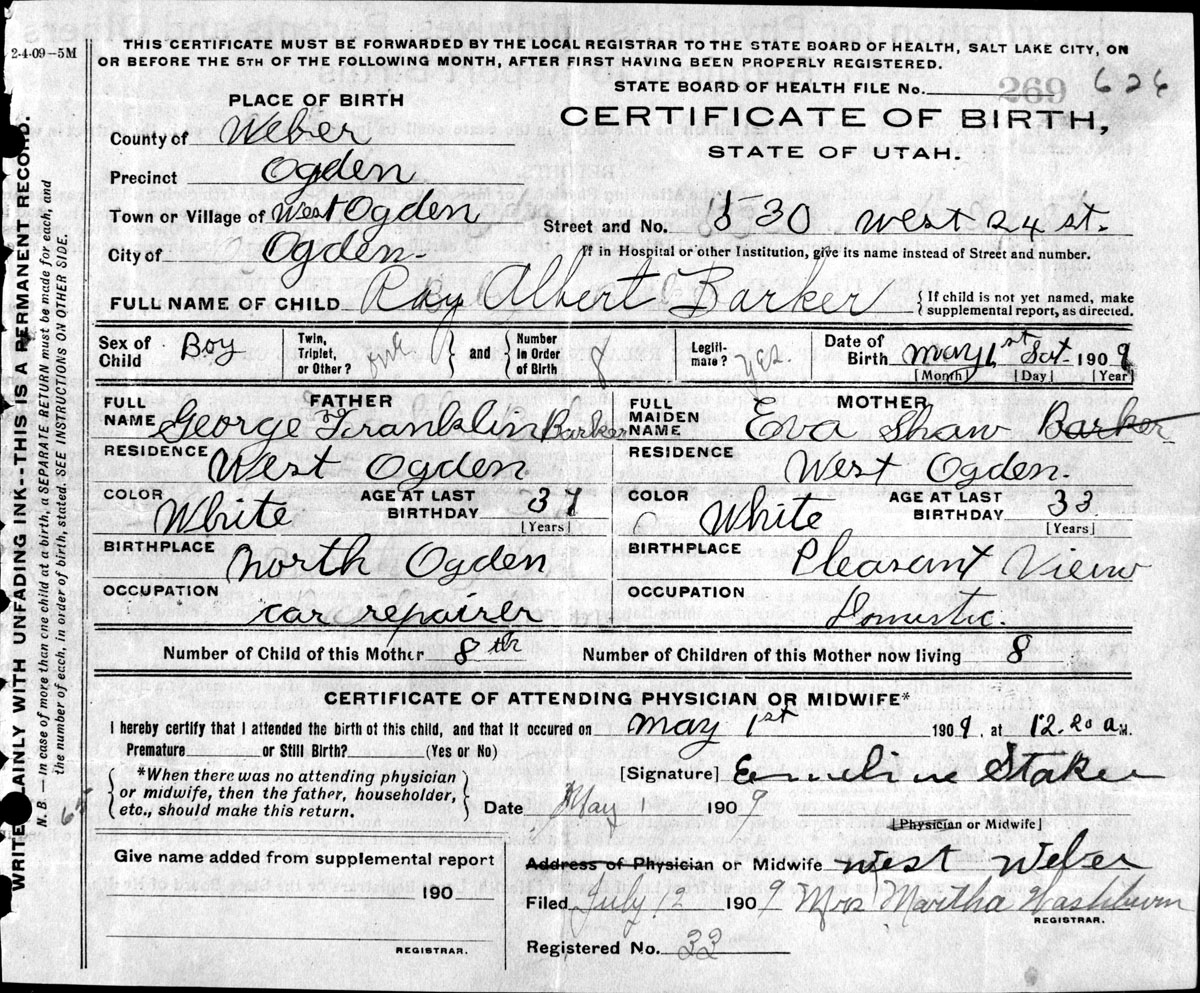 2-4-09-5M
THIS CERTIFICATE MUST BE FORWARDED BY THE LOCAL REGISTRAR TO THE STATE BOARD OF HEALTH, SALT LAKE CITY, ON
OR BEFORE THE 5TH OF THE FOLLOWING MONTH, AFTER FIRST HAVING BEEN PROPERLY REGISTERED.
STATE BOARD OF HEALTH FILE No. 269 626
PLACE OF BIRTH
CERTIFICATE OF BIRTH,
STATE OF UTAH.
County of Weber
Precinct Ogden
Town or Village of West Ogden
Street and No. 530 West 24 st.
City of Ogden.
If in Hospital or other Institution, give its name instead of Street and number.
FULL NAME OF CHILD Ray Albert Barker
{If child is not yet named, make
supplemental report, as directed.
Sex of Child Boy
Twin, Triplet, or Other? one } and { Number in Order of Birth 8
Legitimate? yes.
Date of Birth May 1st Sat. 1909
[Month] [Day] [Year]
FATHER
FULL NAME George Franklin Barker
RESIDENCE West Ogden.
COLOR White
AGE AT LAST BIRTHDAY 37
[Years]
BIRTHPLACE North Ogden
OCCUPATION car repairer
MOTHER
FULL MAIDEN NAME Eva Shaw Barker
RESIDENCE West Ogden.
COLOR White
AGE AT LAST BIRTHDAY 33
[Years]
BIRTHPLACE Pleasant View
OCCUPATION Domestic.
Number of Child of this Mother 8th
Number of Children of this Mother now living 8
CERTIFICATE OF ATTENDING PHYSICIAN OR MIDWIFE*
I hereby certify that I attended the birth of this child, and that it occured on May 1st 1909, at 12.20 a M.
Premature or Still Birth? (Yes or No)
{ *When there was no attending physician
or midwife, then the father, householder,
etc., should make this return. }
[Signature] Emeline Staker
Date May 1 1909
[Physician or Midwife]
Give name added from supplemental report
190
REGISTRAR.
Address of Physician or Midwife West Weber
Filed July 12 1909 Mrs Martha Washburn
REGISTRAR.
Registered No. 33
WRITE PLAINLY WITH UNFADING INK--THIS IS A PERMANENT RECORD.
N.B.—In case of more than one child at a birth, a SEPARATE RETURN must be made for each, and
the number of each, in order of birth, stated. SEE INSTRUCTIONS ON OTHER SIDE.